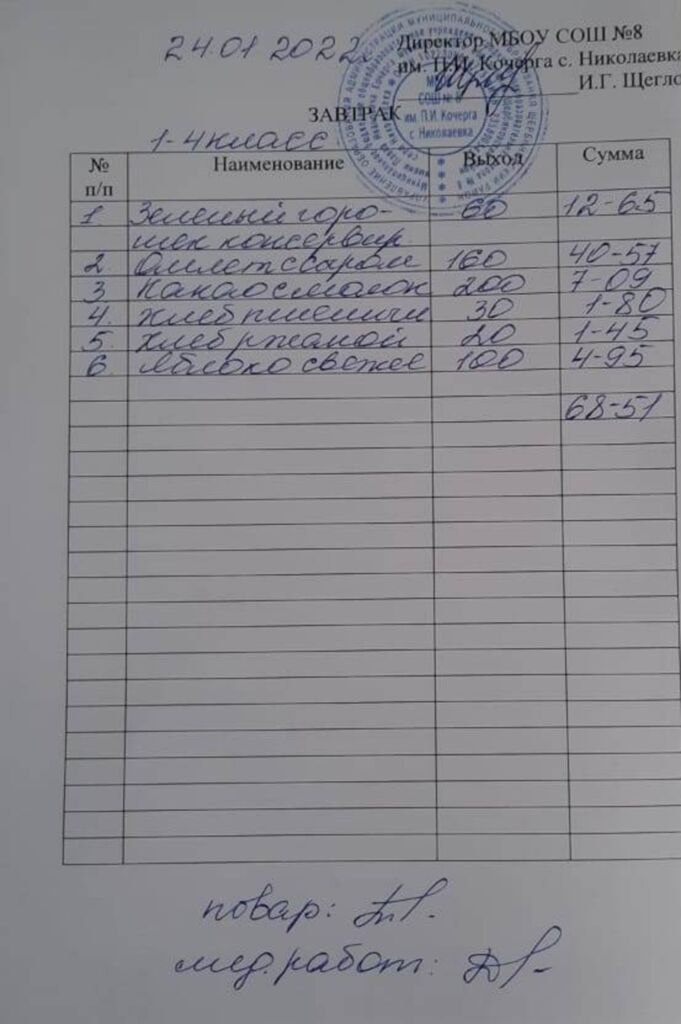 24.01 2022г.
Директор МБОУ СОШ №8
им. П.И. Кочерга с. Николаевка
И.Г. Щегло
СОШ № 8
им. П.И. Кочерга
с Николаевка
ЗАВТРАК
1-4 класс
№ п/п Наименование Выход Сумма
1. Зеленый горо- 60 12-65
шек консервир.
2. Омлет с сыром 160 40-57
3 Какао с молок 200 7-09
4. Хлеб пшеничн 30 1-80
5. Хлеб ржаной 20 1-45
6 Яблоко свежее 100 4-95
68-51
повар:
мед. работ: